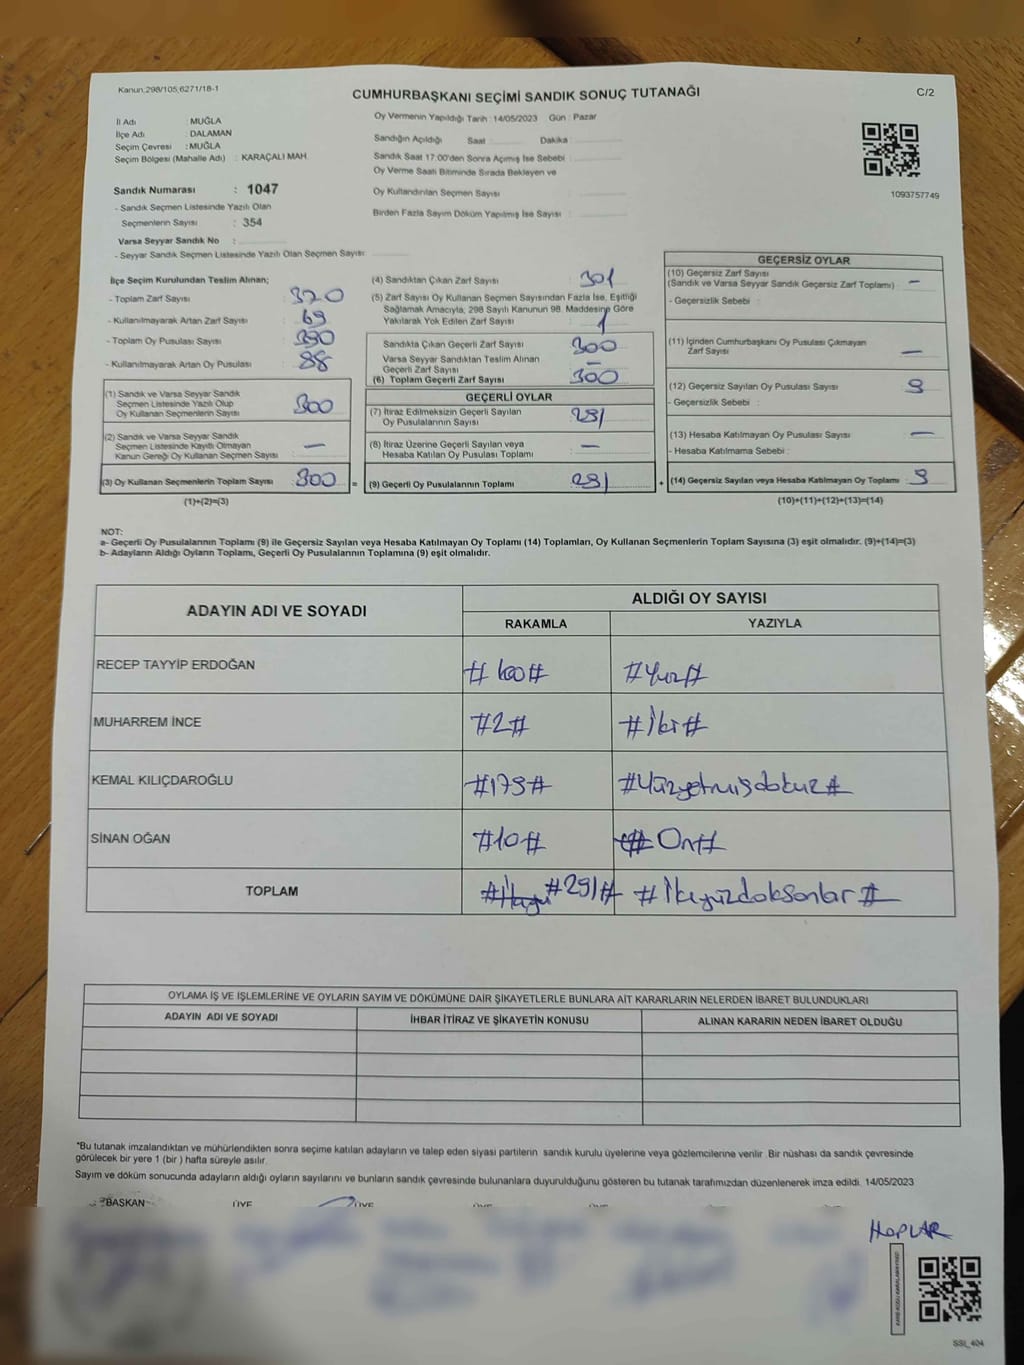 Kanun,298/105;6271/18-1
CUMHURBAŞKANI SEÇİMİ SANDIK SONUÇ TUTANAĞI
C/2
İl Adı : MUĞLA
İlçe Adı : DALAMAN
Seçim Çevresi : MUĞLA
Seçim Bölgesi (Mahalle Adı) : KARAÇALI MAH.
Sandık Numarası : 1047
- Sandık Seçmen Listesinde Yazılı Olan
Seçmenlerin Sayısı : 354
Varsa Seyyar Sandık No :
- Seyyar Sandık Seçmen Listesinde Yazılı Olan Seçmen Sayısı:
Oy Vermenin Yapıldığı Tarih : 14/05/2023 Gün : Pazar
Sandığın Açıldığı Saat : Dakika :
Sandık Saat 17:00'den Sonra Açımış İse Sebebi :
Oy Verme Saati Bitiminde Sırada Bekleyen ve
Oy Kullandırılan Seçmen Sayısı :
Birden Fazla Sayım Döküm Yapılmış İse Sayısı :
1093757749
İlçe Seçim Kurulundan Teslim Alınan;
- Toplam Zarf Sayısı : 370
- Kullanılmayarak Artan Zarf Sayısı : 69
- Toplam Oy Pusulası Sayısı : 390
- Kullanılmayarak Artan Oy Pusulası : 88
(1) Sandık ve Varsa Seyyar Sandık
Seçmen Listesinde Yazılı Olup
Oy Kullanan Seçmenlerin Sayısı : 300
(2) Sandık ve Varsa Seyyar Sandık
Seçmen Listesinde Kayıtlı Olmayan
Kanun Gereği Oy Kullanan Seçmen Sayısı : —
(3) Oy Kullanan Seçmenlerin Toplam Sayısı : 300
(1)+(2)=(3)
(4) Sandıktan Çıkan Zarf Sayısı : 301
(5) Zarf Sayısı Oy Kullanan Seçmen Sayısından Fazla İse, Eşitliği
Sağlamak Amacıyla, 298 Sayılı Kanunun 98. Maddesine Göre
Yakılarak Yok Edilen Zarf Sayısı : 1
Sandıkta Çıkan Geçerli Zarf Sayısı : 300
Varsa Seyyar Sandıktan Teslim Alınan
Geçerli Zarf Sayısı : —
(6) Toplam Geçerli Zarf Sayısı : 300
GEÇERLİ OYLAR
(7) İtiraz Edilmeksizin Geçerli Sayılan
Oy Pusulalarının Sayısı : 291
(8) İtiraz Üzerine Geçerli Sayılan veya
Hesaba Katılan Oy Pusulası Toplamı : —
= (9) Geçerli Oy Pusulalarının Toplamı : 291
GEÇERSİZ OYLAR
(10) Geçersiz Zarf Sayısı
(Sandık ve Varsa Seyyar Sandık Geçersiz Zarf Toplamı) : —
- Geçersizlik Sebebi :
(11) İçinden Cumhurbaşkanı Oy Pusulası Çıkmayan
Zarf Sayısı : —
(12) Geçersiz Sayılan Oy Pusulası Sayısı : 9
- Geçersizlik Sebebi :
(13) Hesaba Katılmayan Oy Pusulası Sayısı : —
- Hesaba Katılmama Sebebi :
+ (14) Geçersiz Sayılan veya Hesaba Katılmayan Oy Toplamı : 9
(10)+(11)+(12)+(13)=(14)
NOT:
a- Geçerli Oy Pusulalarının Toplamı (9) ile Geçersiz Sayılan veya Hesaba Katılmayan Oy Toplamı (14) Toplamları, Oy Kullanan Seçmenlerin Toplam Sayısına (3) eşit olmalıdır. (9)+(14)=(3)
b- Adayların Aldığı Oyların Toplamı, Geçerli Oy Pusulalarının Toplamına (9) eşit olmalıdır.
ADAYIN ADI VE SOYADI
ALDIĞI OY SAYISI
RAKAMLA YAZIYLA
RECEP TAYYİP ERDOĞAN #100# #Yüz#
MUHARREM İNCE #2# #İki#
KEMAL KILIÇDAROĞLU #179# #Yüzyetmişdokuz#
SİNAN OĞAN #10# #On#
TOPLAM #291# #İkiyüzdoksanbir#
OYLAMA İŞ VE İŞLEMLERİNE VE OYLARIN SAYIM VE DÖKÜMÜNE DAİR ŞİKAYETLERLE BUNLARA AİT KARARLARIN NELERDEN İBARET BULUNDUKLARI
ADAYIN ADI VE SOYADI İHBAR İTİRAZ VE ŞİKAYETİN KONUSU ALINAN KARARIN NEDEN İBARET OLDUĞU
*Bu tutanak imzalandıktan ve mühürlendikten sonra seçime katılan adayların ve talep eden siyasi partilerin sandık kurulu üyelerine veya gözlemcilerine verilir. Bir nüshası da sandık çevresinde
görülecek bir yere 1 (bir ) hafta süreyle asılır.
Sayım ve döküm sonucunda adayların aldığı oyların sayılarını ve bunların sandık çevresinde bulunanlara duyurulduğunu gösteren bu tutanak tarafımızdan düzenlenerek imza edildi. 14/05/2023
BAŞKAN ÜYE ÜYE
HOPLAR
SSI_404